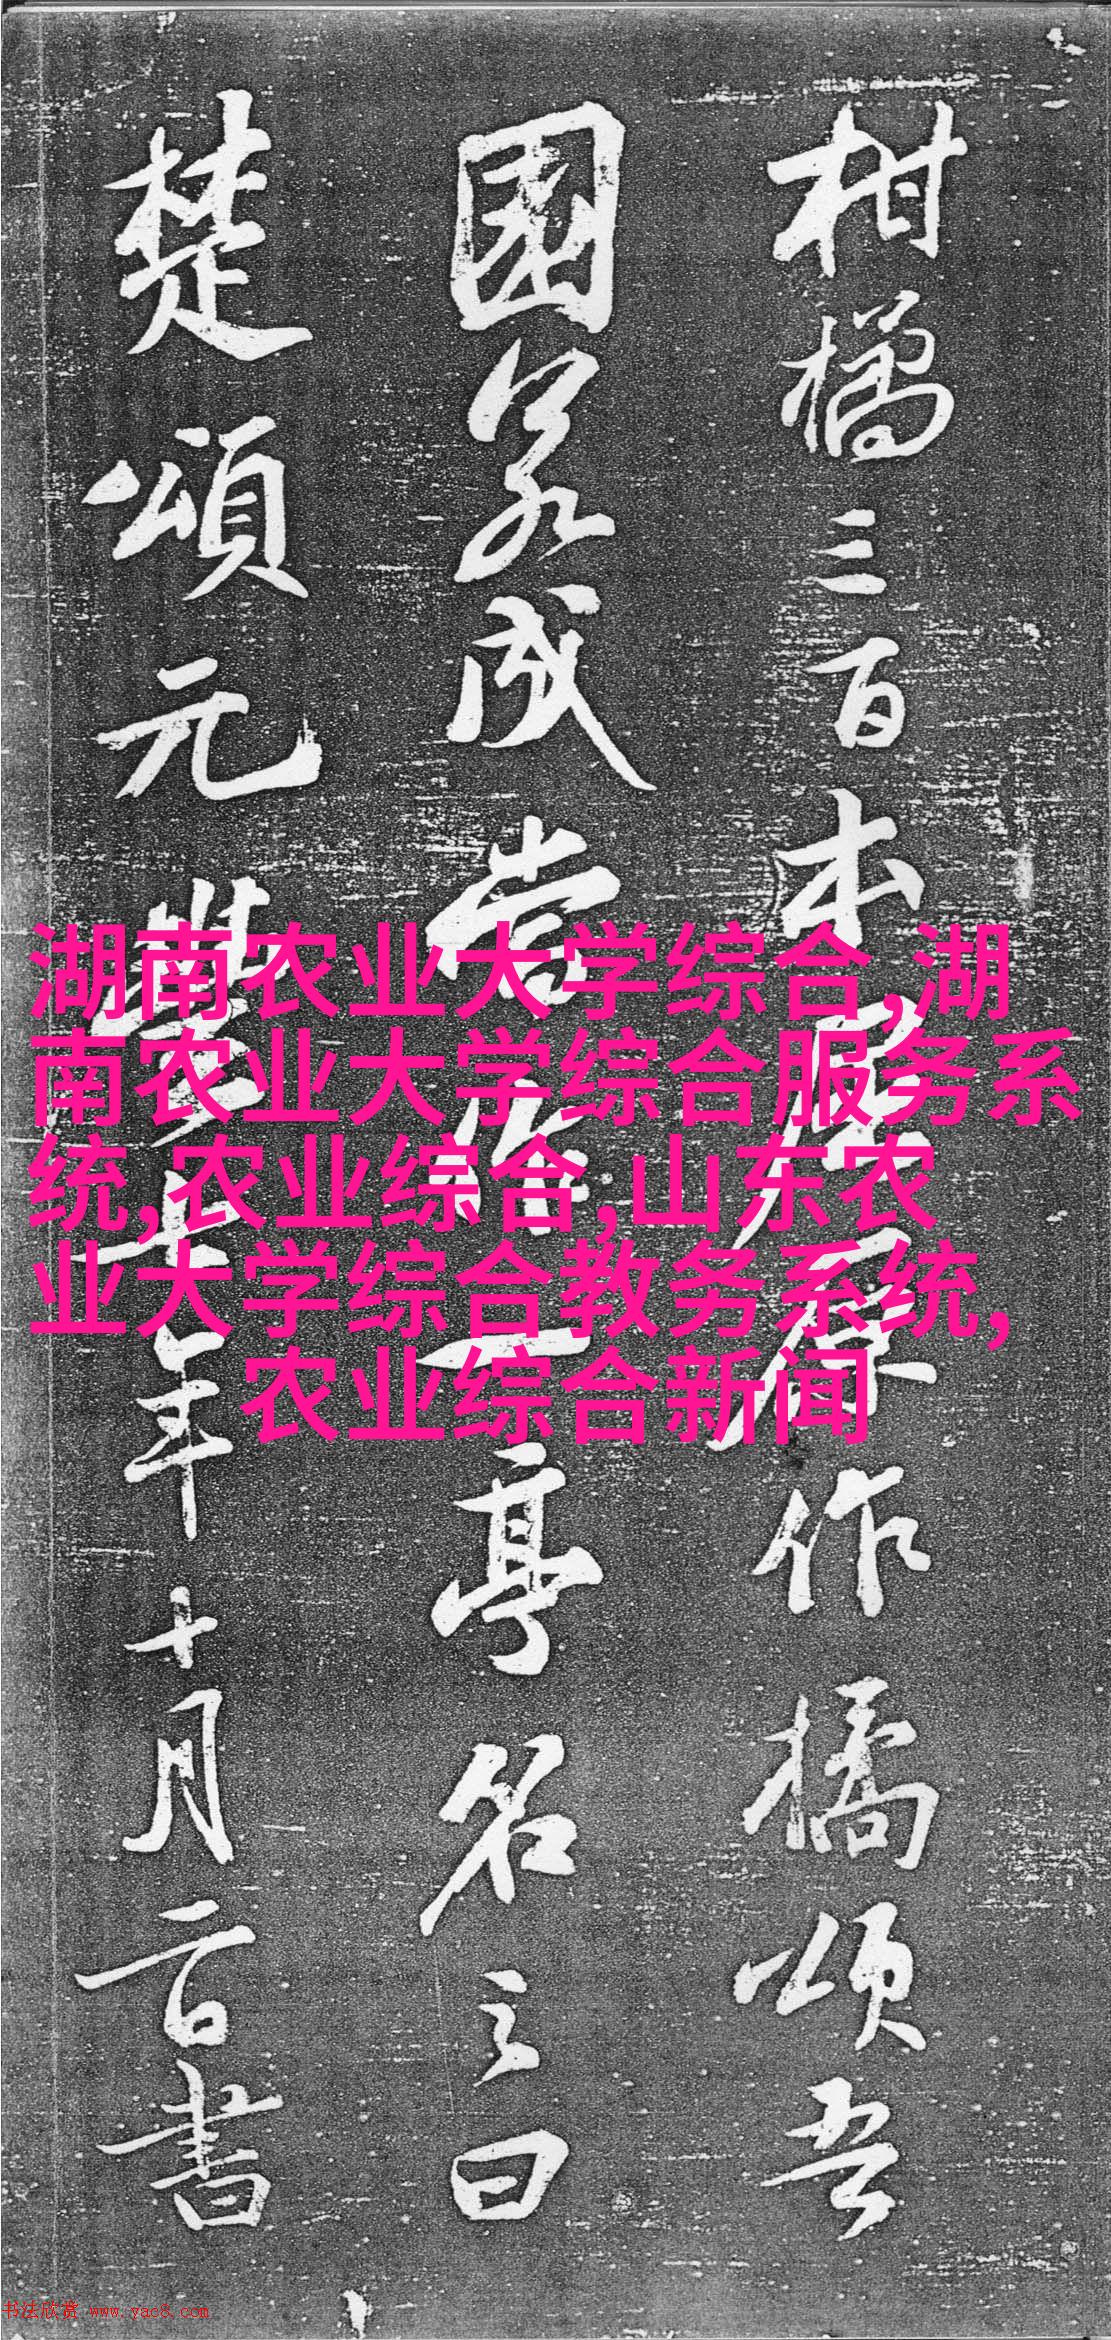 柑橘三百本屈原作橘頌吾
園若成當作一亭名之曰
楚頌元豐七年十月二日書
湖南农业大学综合,湖
南农业大学综合服务系
统,农业综合,山东农
业大学综合教务系统,
农业综合新闻
书法欣赏 www.yac8.com